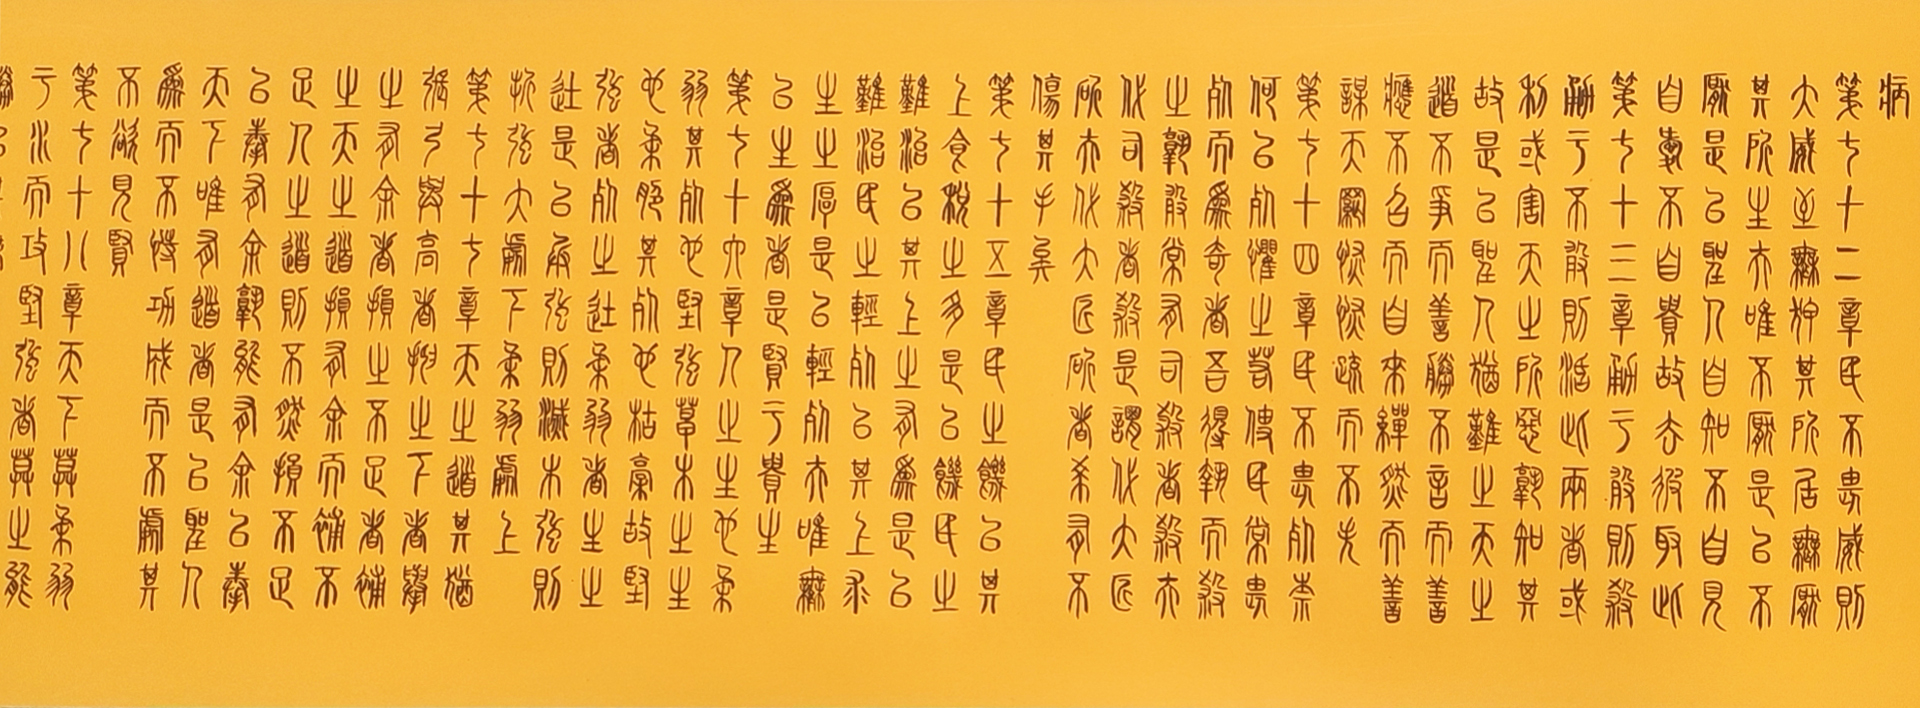 病
第七十二章民不畏威則
大威至無狎其所居無厭
其所生夫唯不厭是以不
厭是以聖人自知不自見
自愛不自貴故去彼取此
第七十三章勇于敢則殺
勇于不敢則活此兩者或
利或害天之所惡孰知其
故是以聖人猶難之天之
道不爭而善勝不言而善
應不召而自來繟然而善
謀天網恢恢疏而不失
第七十四章民不畏死柰
何以死懼之若使民常畏
死而為奇者吾得執而殺
之孰敢常有司殺者殺夫
代司殺者殺是謂代大匠
斲夫代大匠斲者希有不
傷其手矣
第七十五章民之饑以其
上食稅之多是以饑民之
難治以其上之有為是以
難治民之輕死以其上求
生之厚是以輕死夫唯無
以生為者是賢于貴生
第七十六章人之生也柔
弱其死也堅強草木之生
也柔脆其死也枯槁故堅
強者死之徒柔弱者生之
徒是以兵強則滅木強則
折強大處下柔弱處上
第七十七章天之道其猶
張弓與高者抑之下者舉
之有余者損之不足者補
之天之道損有余而補不
足人之道則不然損不足
以奉有余孰能有余以奉
天下唯有道者是以聖人
為而不恃功成而不處其
不欲見賢
第七十八章天下莫柔弱
于水而攻堅強者莫之能